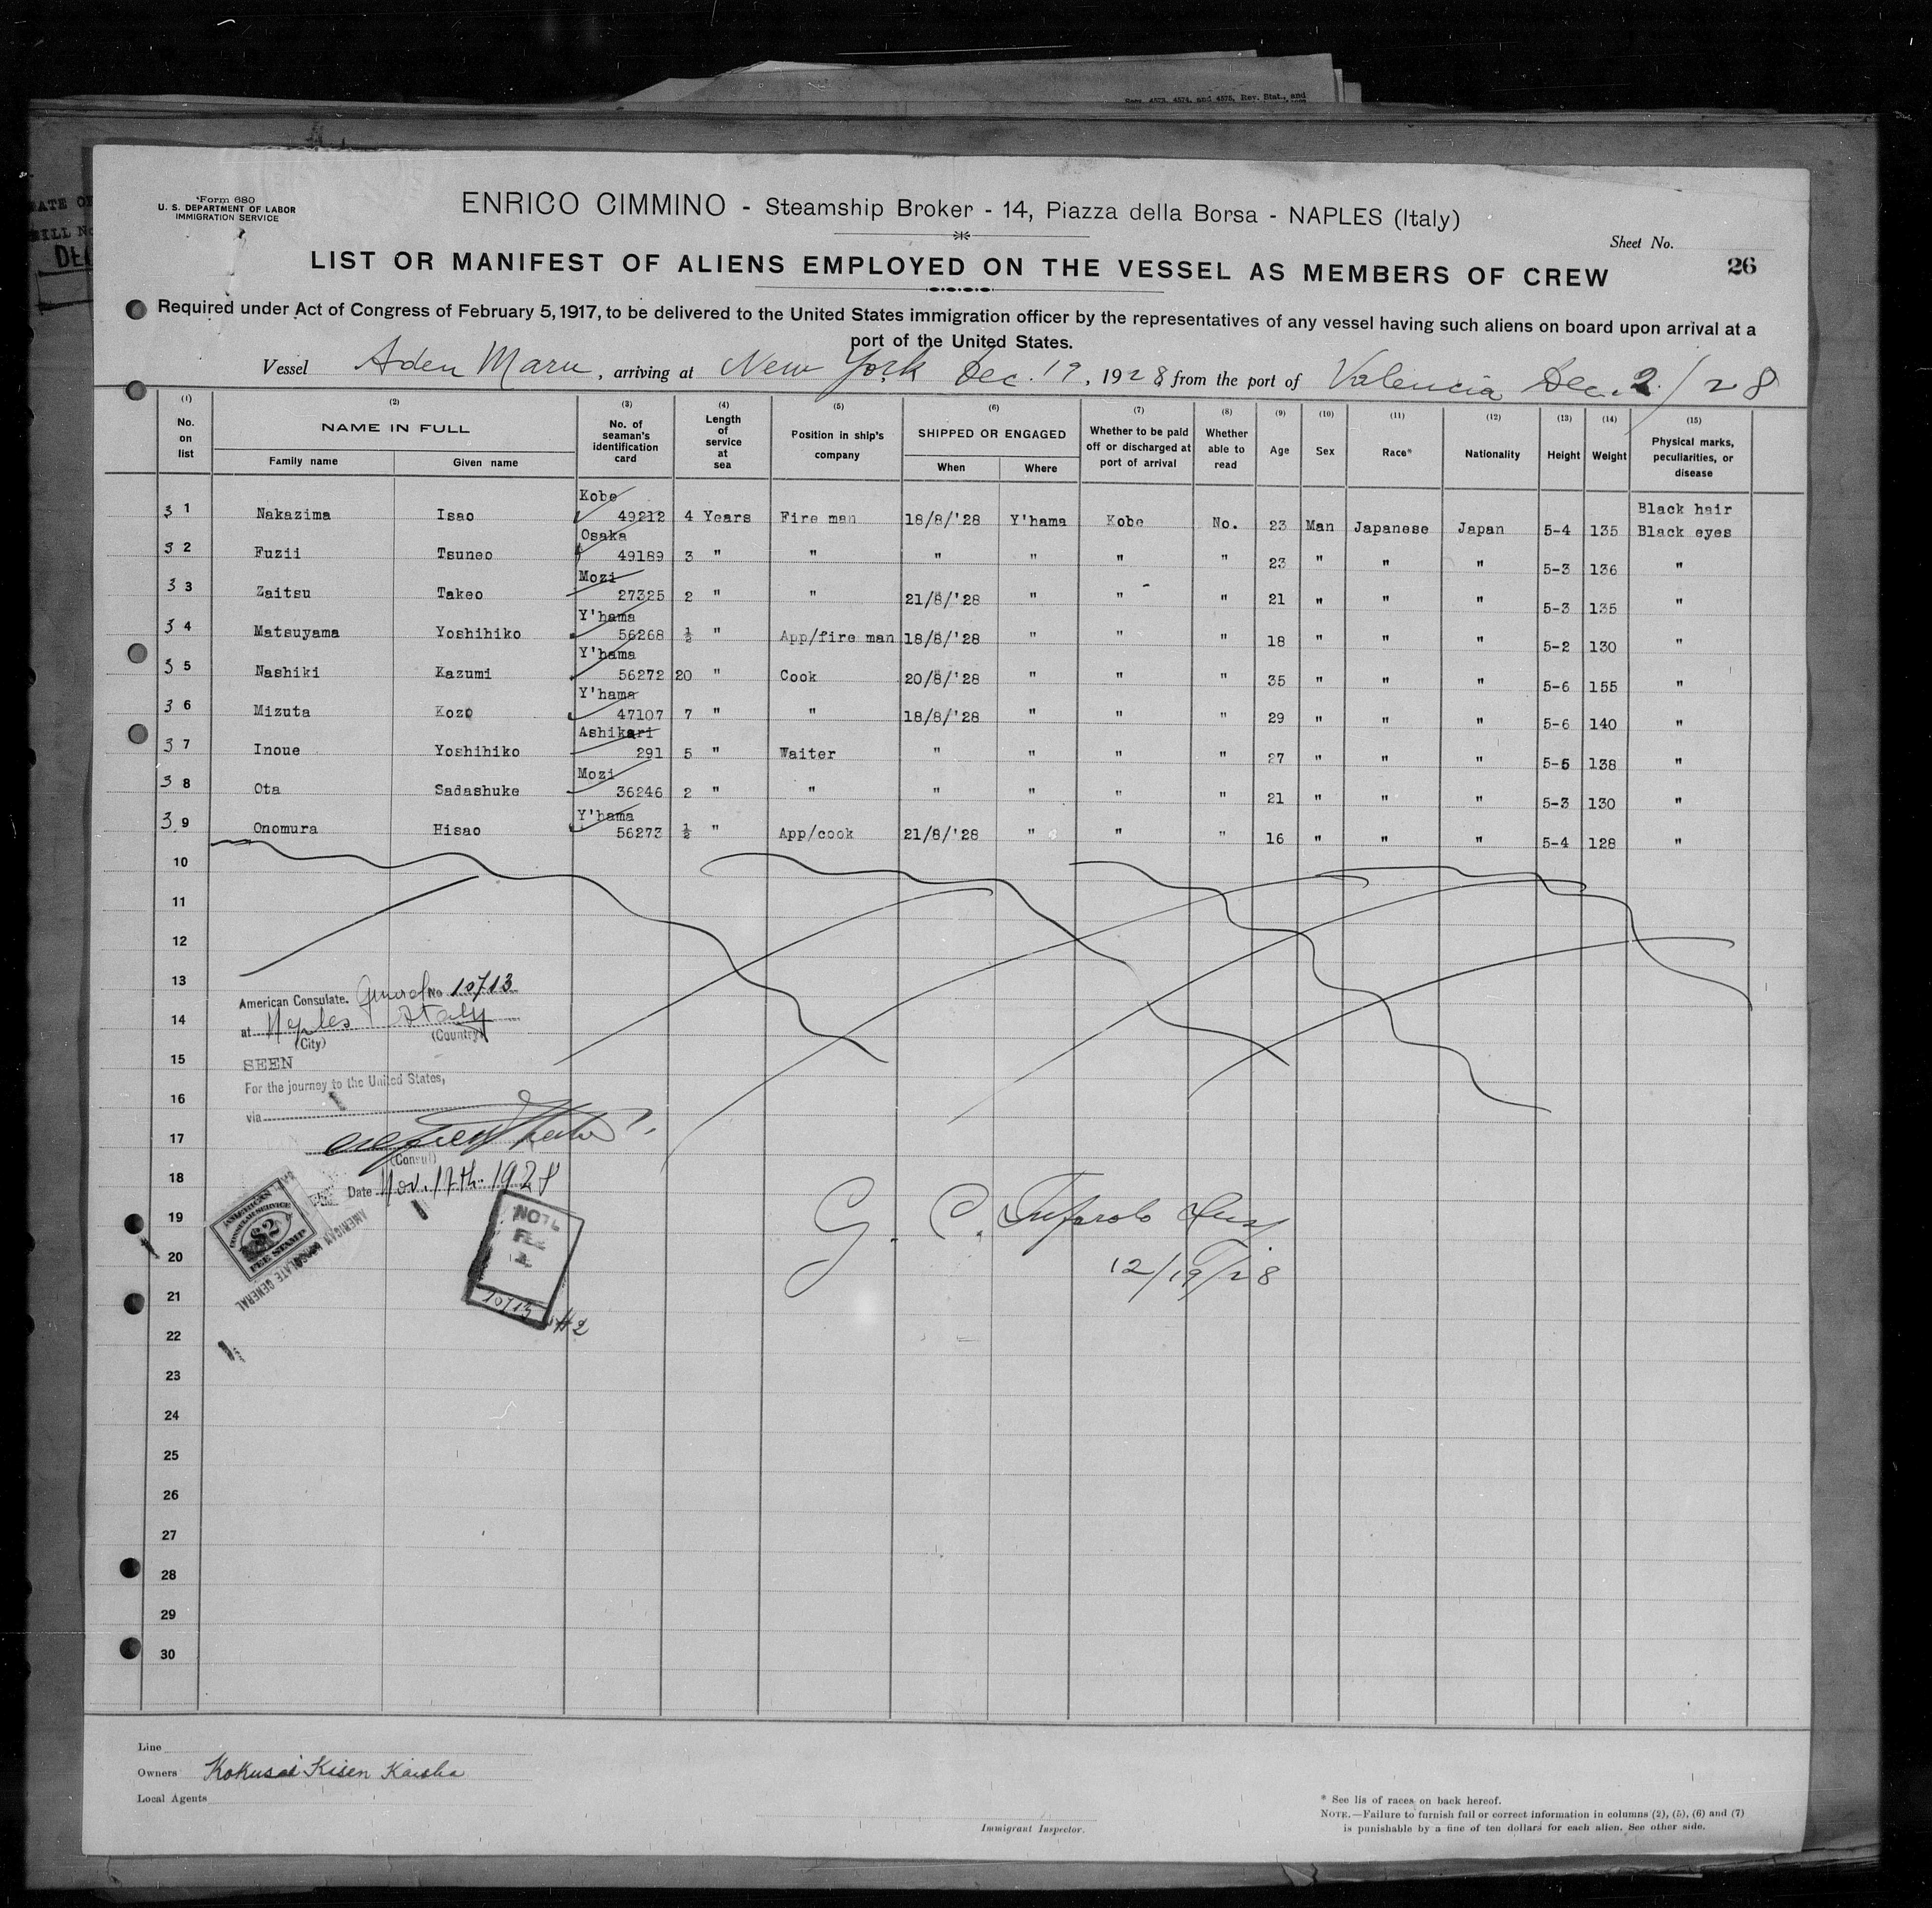 Sec. 4573, 4574, and 4575, Rev. Stat., and
Form 680
U. S. DEPARTMENT OF LABOR
IMMIGRATION SERVICE
ENRICO CIMMINO - Steamship Broker - 14, Piazza della Borsa - NAPLES (Italy)
Sheet No.
26
LIST OR MANIFEST OF ALIENS EMPLOYED ON THE VESSEL AS MEMBERS OF CREW
Required under Act of Congress of February 5, 1917, to be delivered to the United States immigration officer by the representatives of any vessel having such aliens on board upon arrival at a
port of the United States.
Vessel Aden Maru, arriving at New York Dec. 19, 1928, from the port of Valencia Dec. 2/28
(1) No. on list (2) NAME IN FULL Family name Given name (3) No. of seaman's identification card (4) Length of service at sea (5) Position in ship's company (6) SHIPPED OR ENGAGED When Where (7) Whether to be paid off or discharged at port of arrival (8) Whether able to read (9) Age (10) Sex (11) Race* (12) Nationality (13) Height (14) Weight (15) Physical marks, peculiarities, or disease
3 1 Nakazima Isao Kobe 49212 4 Years Fire man 18/8/'28 Y'hama Kobe No. 23 Man Japanese Japan 5-4 135 Black hair Black eyes
3 2 Fuzii Tsuneo Osaka 49189 3 " " " " " " 23 " " " 5-3 136 "
3 3 Zaitsu Takeo Mozi 27325 2 " " 21/8/'28 " " " 21 " " " 5-3 135 "
3 4 Matsuyama Yoshihiko Y'hama 56268 ½ " App/fire man 18/8/'28 " " " 18 " " " 5-2 130 "
3 5 Nashiki Kazumi Y'hama 56272 20 " Cook 20/8/'28 " " " 35 " " " 5-6 155 "
3 6 Mizuta Kozo Y'hama 47107 7 " " 18/8/'28 " " " 29 " " " 5-6 140 "
3 7 Inoue Yoshihiko Ashikari 291 5 " Waiter " " " " 27 " " " 5-5 138 "
3 8 Ota Sadashuke Mozi 36246 2 " " " " " " 21 " " " 5-3 130 "
3 9 Onomura Hisao Y'hama 56273 ½ " App/cook 21/8/'28 " " " 16 " " " 5-4 128 "
10
11
12
13
American Consulate. General No 10713
14
at Naples Italy
(City) (Country)
15
SEEN
For the journey to the United States,
16
via
17
(Consul)
18
Date Nov. 17th. 1928
19
AMERICAN CONSULAR SERVICE $2 FEE STAMP
AMERICAN CONSULATE GENERAL
G. C.
20
12/19/28
21
10713
#2
22
23
24
25
26
27
28
29
30
Line
Owners Kokusai Kisen Kaisha
Local Agents
Immigrant Inspector.
* See lis of races on back hereof.
NOTE.—Failure to furnish full or correct information in columns (2), (5), (6) and (7)
is punishable by a fine of ten dollars for each alien. See other side.